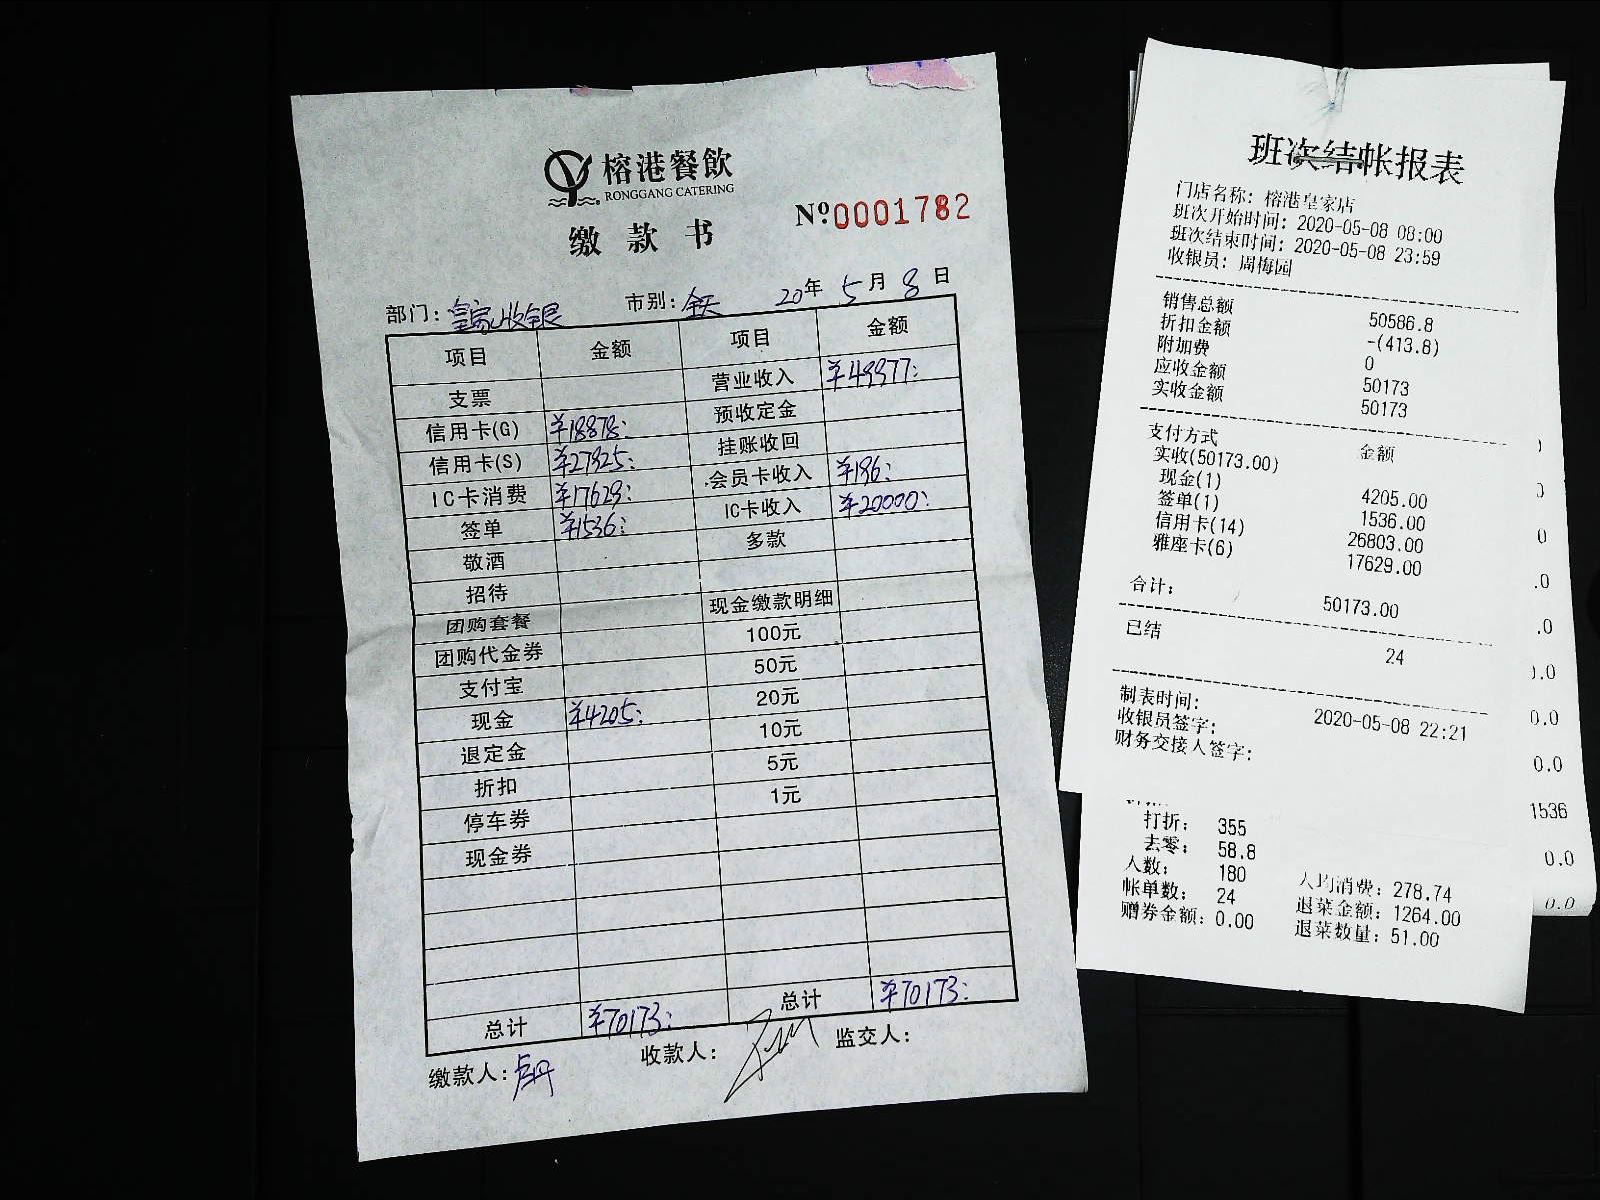 榕港餐飲
RONGGANG CATERING
缴款书
№0001782
部门：皇家收银 市别：全天 20年5月8日
项目 金额 项目 金额
支票 营业收入 ¥49977：
信用卡(G) ¥18878： 预收定金
信用卡(S) ¥27925： 挂账收回
IC卡消费 ¥17629： 会员卡收入 ¥196：
签单 ¥1536： IC卡收入 ¥20000：
敬酒 多款
招待
团购套餐 现金缴款明细
团购代金券 100元
支付宝 50元
现金 ¥4205： 20元
退定金 10元
折扣 5元
停车券 1元
现金券
总计 ¥70173： 总计 ¥70173：
缴款人：卢丹 收款人： 监交人：
班次结帐报表
门店名称：榕港皇家店
班次开始时间：2020-05-08 08:00
班次结束时间：2020-05-08 23:59
收银员：周梅园
销售总额 50586.8
折扣金额 -(413.8)
附加费 0
应收金额 50173
实收金额 50173
支付方式 金额
实收(50173.00)
现金(1) 4205.00
签单(1) 1536.00
信用卡(14) 26803.00
雅座卡(6) 17629.00
合计： 50173.00
已结 24
制表时间： 2020-05-08 22:21
收银员签字：
财务交接人签字：
打折： 355
去零： 58.8
人数： 180 人均消费：278.74
帐单数： 24 退菜金额：1264.00
赠券金额：0.00 退菜数量：51.00
0
.0
.0
0.0
0.0
0.0
1536
0.0
0.0